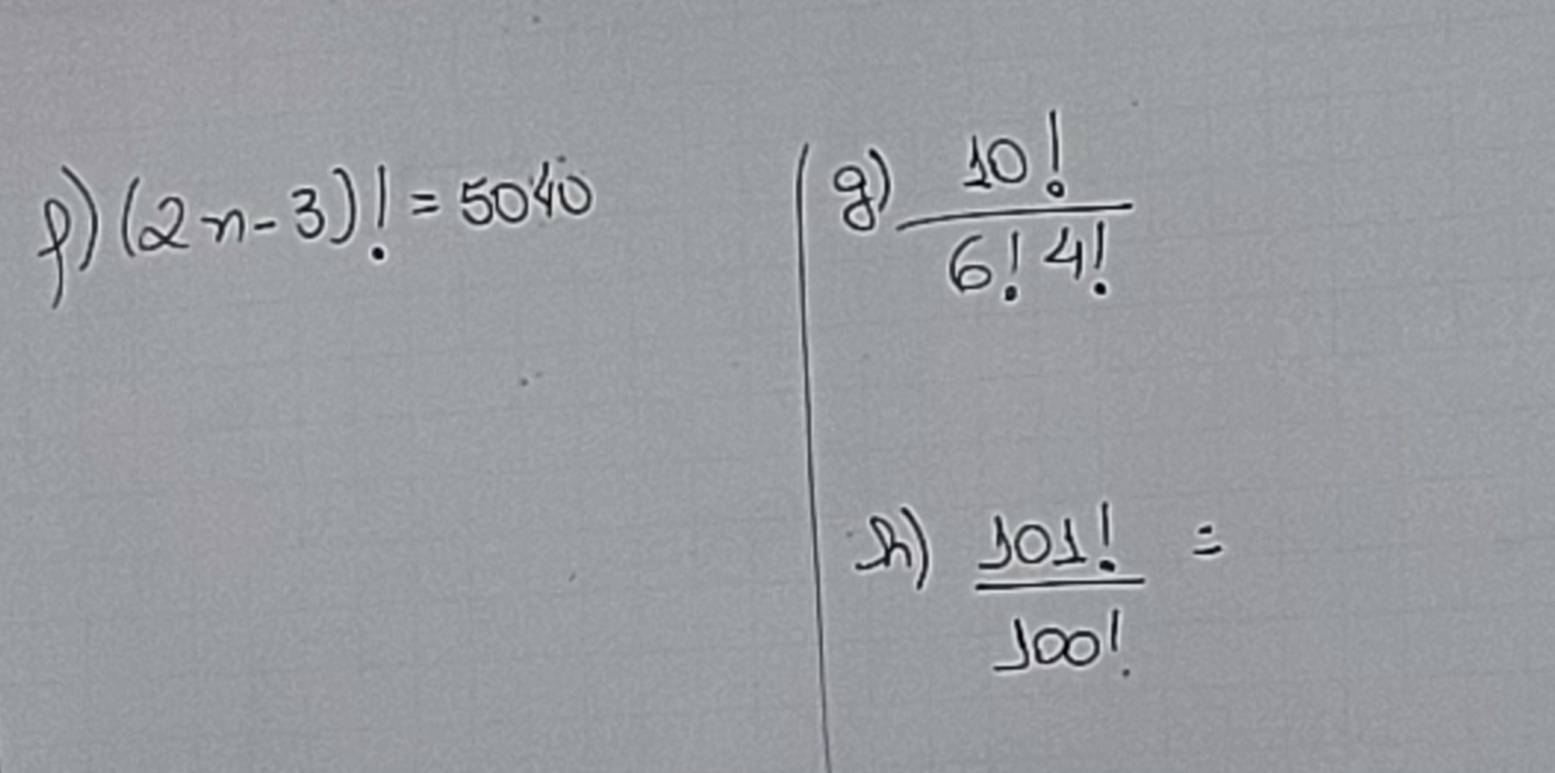 f) (2n-3)! = 5040
g) 10!
6! 4!
h) 101! =
100!